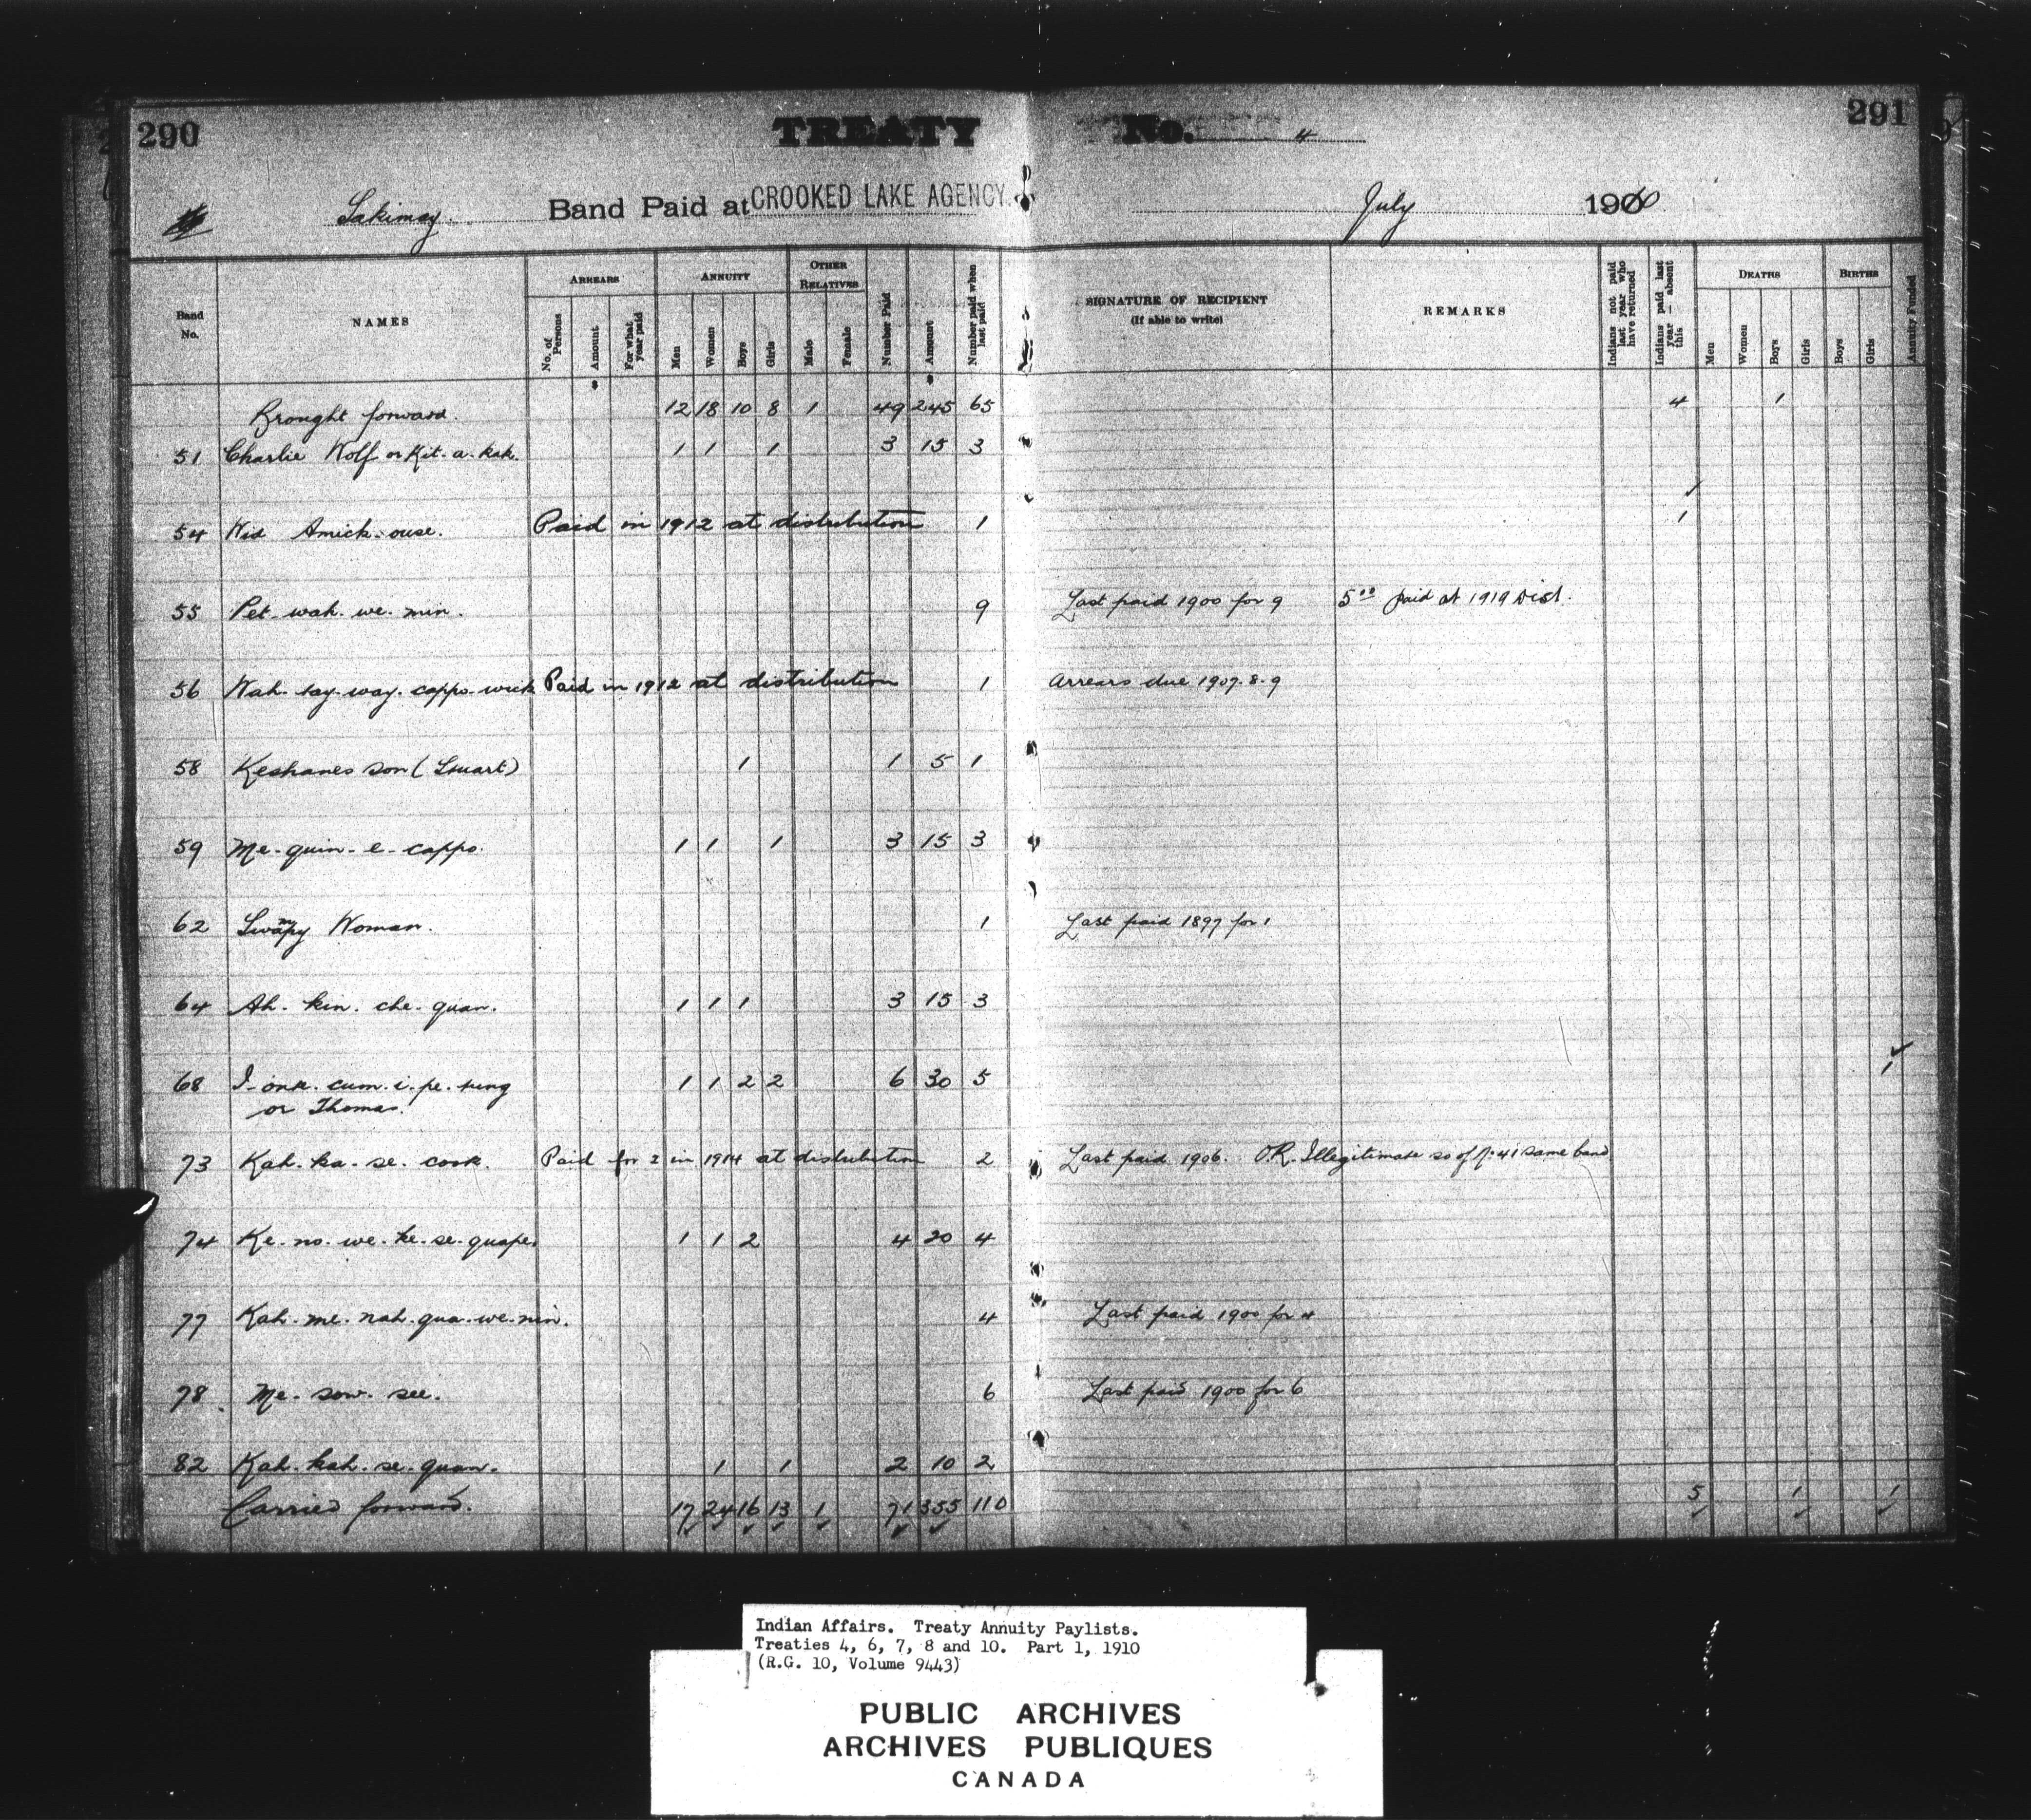 290
TREATY No. 4
291
Sakimay Band Paid at CROOKED LAKE AGENCY. July 1910
Band No.
NAMES
ARREARS
No. of Persons
Amount
For what year paid
ANNUITY
Men
Women
Boys
Girls
OTHER RELATIVES
Male
Female
Number Paid
Amount
Number paid when last paid
SIGNATURE OF RECIPIENT
(If able to write)
REMARKS
Indians not paid last year who have returned
Indians paid last year — absent this
DEATHS
Men
Women
Boys
Girls
BIRTHS
Boys
Girls
Annuity Funded
Brought forward. 12 18 10 8 1 49 245 65 4 1
51 Charlie Wolf or Kit-a-kak. 1 1 1 3 15 3
54 Wid Amick-ouse. Paid in 1912 at distribution 1 1
55 Pet-wah-we-min. 9 Last paid 1900 for 9 5.00 paid at 1919 Dist.
56 Wah-say-way-cappo-wick Paid in 1912 at distribution 1 Arrears due 1907-8-9
58 Keshanes son (Stuart) 1 1 5 1
59 Me-quin-e-cappo. 1 1 1 3 15 3
62 Swampy Woman. 1 Last paid 1897 for 1
64 Ah-kin-che-quan. 1 1 1 3 15 3
68 I-onk-cum-i-pe-tung 1 1 2 2 6 30 5 1
or Thomas.
73 Kah-ka-se-cook. Paid for 2 in 1914 at distribution 2 Last paid 1906. O.R. Illegitimate so of No 41 same band
74 Ke-no-we-ke-se-quape. 1 1 2 4 20 4
77 Kah-me-nah-qua-we-nin. 4 Last paid 1900 for 4
78 Me-sow-see. 6 Last paid 1900 for 6
82 Kah-kah-se-quan. 1 1 2 10 2
Carried forward. 17 24 16 13 1 71 355 110 5 1 1
Indian Affairs. Treaty Annuity Paylists.
Treaties 4, 6, 7, 8 and 10. Part 1, 1910
(R.G. 10, Volume 9443)
PUBLIC ARCHIVES
ARCHIVES PUBLIQUES
CANADA